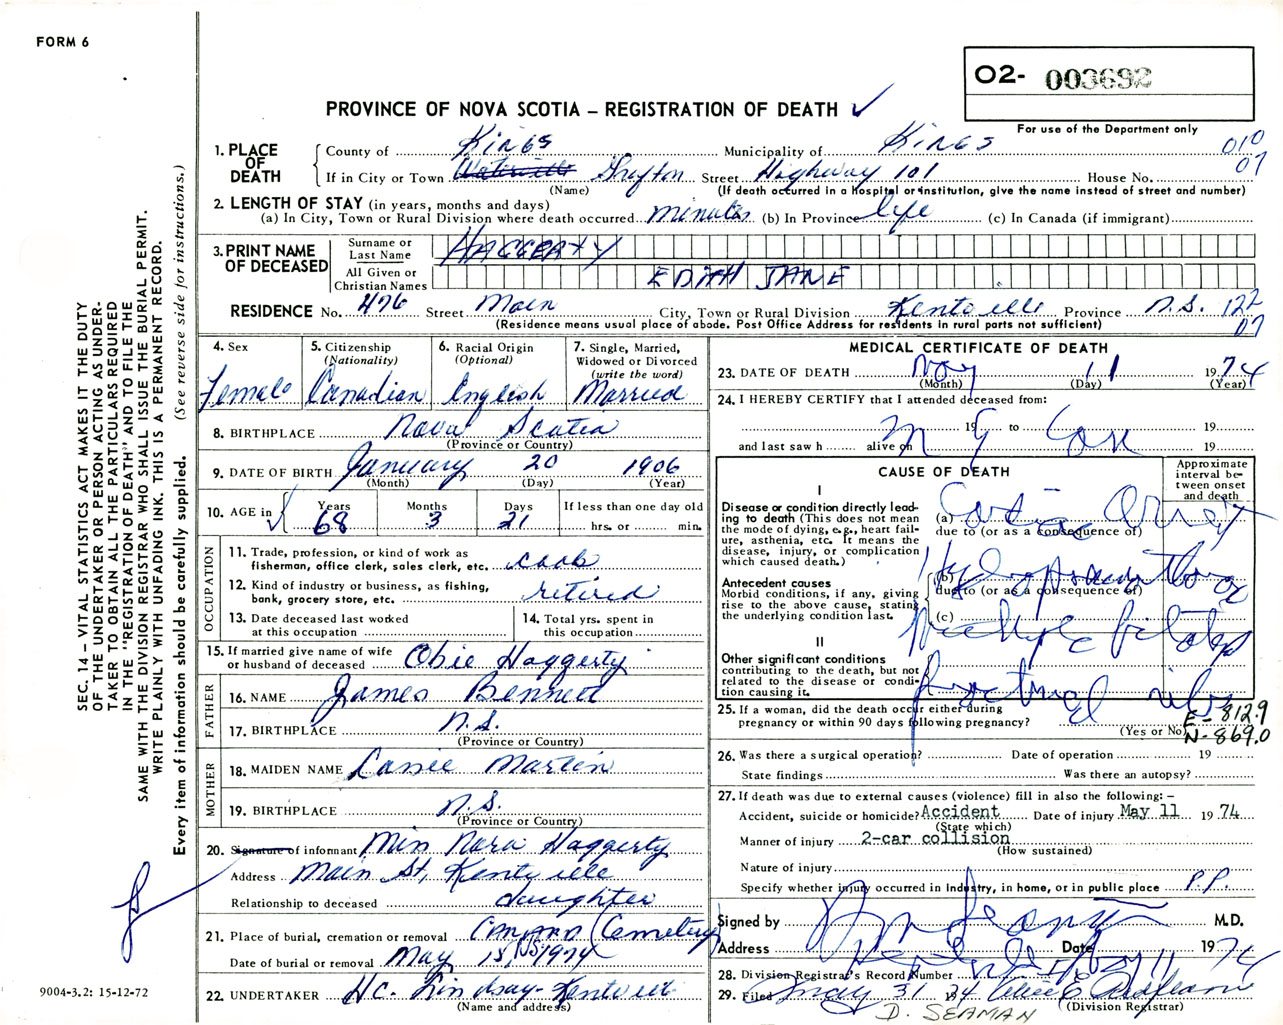 FORM 6
O2- 003692
PROVINCE OF NOVA SCOTIA – REGISTRATION OF DEATH ✓
For use of the Department only
1. PLACE OF DEATH
County of Kings Municipality of Kings 010
If in City or Town Waterville Grafton Street Highway 101 House No. 07
(Name) (If death occurred in a hospital or institution, give the name instead of street and number)
2. LENGTH OF STAY (in years, months and days)
(a) In City, Town or Rural Division where death occurred minutes (b) In Province life (c) In Canada (if immigrant)
3. PRINT NAME OF DECEASED
Surname or Last Name HAGGERTY
All Given or Christian Names EDITH JANE
RESIDENCE No. 476 Street Main City, Town or Rural Division Kentville Province N.S. 122
(Residence means usual place of abode. Post Office Address for residents in rural parts not sufficient) 07
4. Sex Female
5. Citizenship (Nationality) Canadian
6. Racial Origin (Optional) English
7. Single, Married, Widowed or Divorced (write the word) Married
8. BIRTHPLACE Nova Scotia
(Province or Country)
9. DATE OF BIRTH January 20 1906
(Month) (Day) (Year)
10. AGE in Years 68 Months 3 Days 21 If less than one day old hrs. or min.
OCCUPATION
11. Trade, profession, or kind of work as fisherman, office clerk, sales clerk, etc. cook
12. Kind of industry or business, as fishing, bank, grocery store, etc. retired
13. Date deceased last worked at this occupation
14. Total yrs. spent in this occupation
15. If married give name of wife or husband of deceased Obie Haggerty
FATHER
16. NAME James Bennett
17. BIRTHPLACE N.S.
(Province or Country)
MOTHER
18. MAIDEN NAME Martin
19. BIRTHPLACE N.S.
(Province or Country)
20. Signature of informant Nora Haggerty
Address Main St, Kentville
Relationship to deceased daughter
21. Place of burial, cremation or removal CANARD Cemetery NS
Date of burial or removal May 15 1974
22. UNDERTAKER H.C. Lindsay - Kentville
(Name and address)
MEDICAL CERTIFICATE OF DEATH
23. DATE OF DEATH May 11 1974
(Month) (Day) (Year)
24. I HEREBY CERTIFY that I attended deceased from:
19 to 19
and last saw h alive on 19
M G Cox
CAUSE OF DEATH
Approximate interval between onset and death
I
Disease or condition directly leading to death (This does not mean the mode of dying, e.g., heart failure, asthenia, etc. It means the disease, injury, or complication which caused death.)
(a) Cardiac Arrest
due to (or as a consequence of)
Antecedent causes
Morbid conditions, if any, giving rise to the above cause, stating the underlying condition last.
(b)
due to (or as a consequence of)
(c) Multiple
II
Other significant conditions contributing to the death, but not related to the disease or condition causing it.
fractured ribs
25. If a woman, did the death occur either during pregnancy or within 90 days following pregnancy?
(Yes or No)
E-812.9
N-869.0
26. Was there a surgical operation? Date of operation 19
State findings Was there an autopsy?
27. If death was due to external causes (violence) fill in also the following:–
Accident, suicide or homicide? Accident Date of injury May 11 1974
(State which)
Manner of injury 2-car collision
(How sustained)
Nature of injury
Specify whether injury occurred in Industry, in home, or in public place P.P.
Signed by M.D.
Address Date May 11 1974
28. Division Registrar's Record Number
29. Filed May 31 1974
(Division Registrar)
D. SEAMAN
SEC. 14 – VITAL STATISTICS ACT MAKES IT THE DUTY
OF THE UNDERTAKER OR PERSON ACTING AS UNDER-
TAKER TO OBTAIN ALL THE PARTICULARS REQUIRED
IN THE "REGISTRATION OF DEATH" AND TO FILE THE
SAME WITH THE DIVISION REGISTRAR WHO SHALL ISSUE THE BURIAL PERMIT.
WRITE PLAINLY WITH UNFADING INK. THIS IS A PERMANENT RECORD.
Every item of information should be carefully supplied. (See reverse side for instructions.)
9004-3.2: 15-12-72